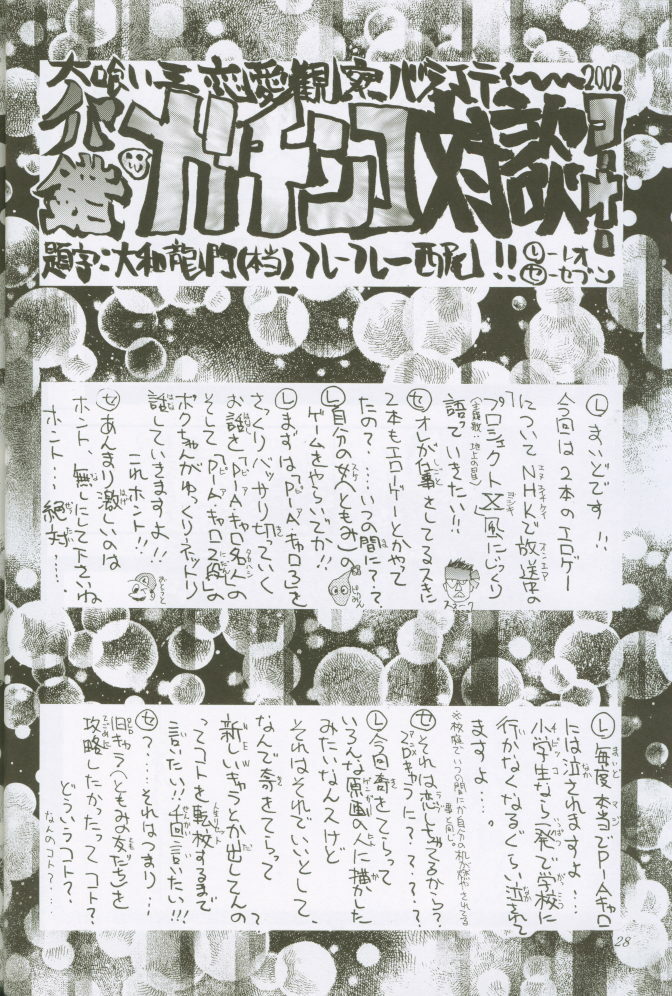 大喰い王恋愛観察バラエティー〜〜2002
ガチンコ対談
コーナー
題字:大和龍門(本当) フレーフレー西尾!! Ⓛ-レオ
Ⓢ-セブン
Ⓛまいどです!!
今回は2本のエロゲー
についてNHKで放送中の
「プロジェクトX」風にじっくり
(主題歌、地上の星)
語っていきたい!!
スネーク
㋝オレが仕事をしてるスキに
2本もエロゲーとかやって
たの?...いつの間に??
Ⓛ自分の女(ともみ)の
ゲームをやらいでか!!
Ⓛまずは、「Pia・キャロ3」を
さっくりバッサリ切っていく
お話を「Pia・キャロ名人」の
そして「Pia・キャロ2殿」の
ボクちゃんがゆっくりネットリ
話していきますよ!!
これホント!!
おとうと
㋝あんまり激しいのは
ホント、無しにして下さいね
ホント...絶対...
Ⓛ毎度本当でPiaキャロ
には泣されますよ...
小学生なら一発で学校に
行かなくなるぐらい泣されて
ますよ...。
㋝それは恋しちゃってるから?
アニメDキャラに????
Ⓛ今回奇をてらって
いろんな原画の人に描かした
みたいなんスけど
それはそれでいいとして、
なんで奇をてらって?
新しいキャラとか出してんの
ってコトを転校するまで
言いたい!!千回言いたい!!!
㋝?...それはつまり...
旧キャラ(ともみの友だち)を
攻略したかったってコト?
どういうコト?
なんのコト?...
28